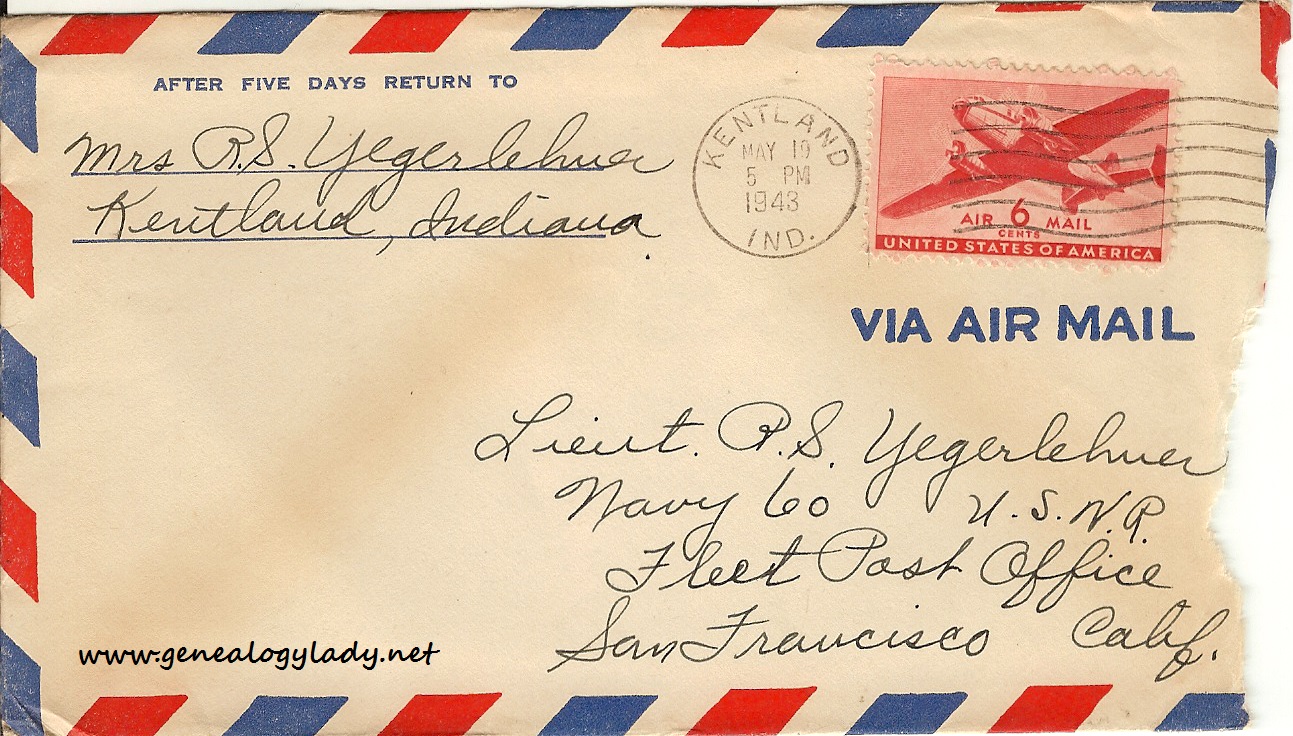 AFTER FIVE DAYS RETURN TO
Mrs R.S. Yegerlehner
Kentland, Indiana
KENTLAND
MAY 19
5 PM
1943
IND.
AIR 6 MAIL
CENTS
UNITED STATES OF AMERICA
VIA AIR MAIL
Lieut. R.S. Yegerlehner
Navy 60 U.S.N.R.
Fleet Post Office
San Francisco Calif.
www.genealogylady.net